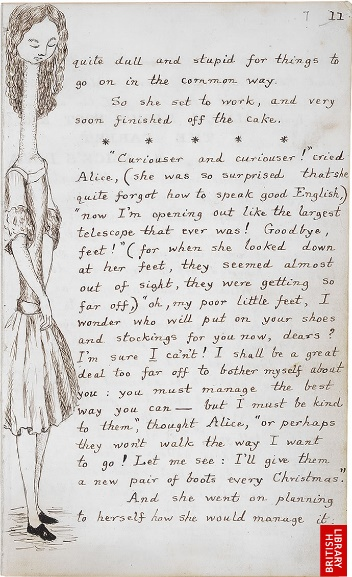 7 11
quite dull and stupid for things to
go on in the common way.
So she set to work, and very
soon finished off the cake.
* * * * *
"Curiouser and curiouser!" cried
Alice, (she was so surprised that she
quite forgot how to speak good English,)
"now I'm opening out like the largest
telescope that ever was! Goodbye,
feet!" (for when she looked down
at her feet, they seemed almost
out of sight, they were getting so
far off,) "oh, my poor little feet, I
wonder who will put on your shoes
and stockings for you now, dears?
I'm sure I can't! I shall be a great
deal too far off to bother myself about
you: you must manage the best
way you can — but I must be kind
to them", thought Alice, "or perhaps
they won't walk the way I want
to go! Let me see: I'll give them
a new pair of boots every Christmas."
And she went on planning
to herself how she would manage it:
BRITISH
LIBRARY